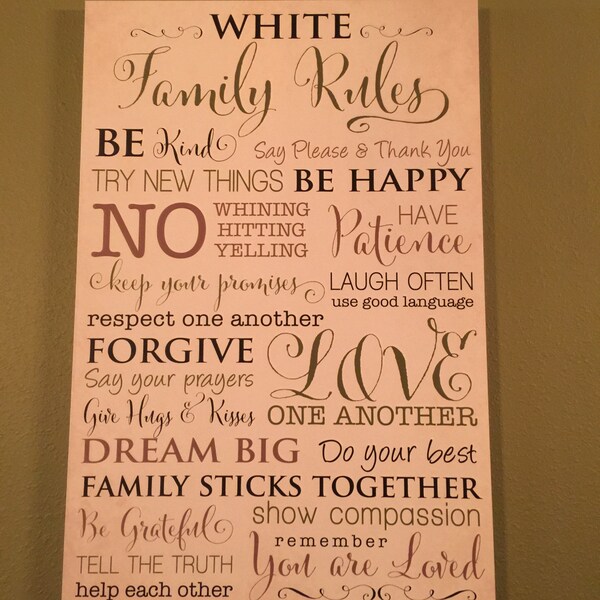 WHITE
Family Rules
BE Kind Say Please & Thank You
TRY NEW THINGS BE HAPPY
NO WHINING
HITTING
YELLING
HAVE
Patience
keep your promises LAUGH OFTEN
use good language
respect one another
FORGIVE LOVE
Say your prayers
Give Hugs & Kisses ONE ANOTHER
DREAM BIG Do your best
FAMILY STICKS TOGETHER
Be Grateful show compassion
remember
TELL THE TRUTH You are Loved
help each other